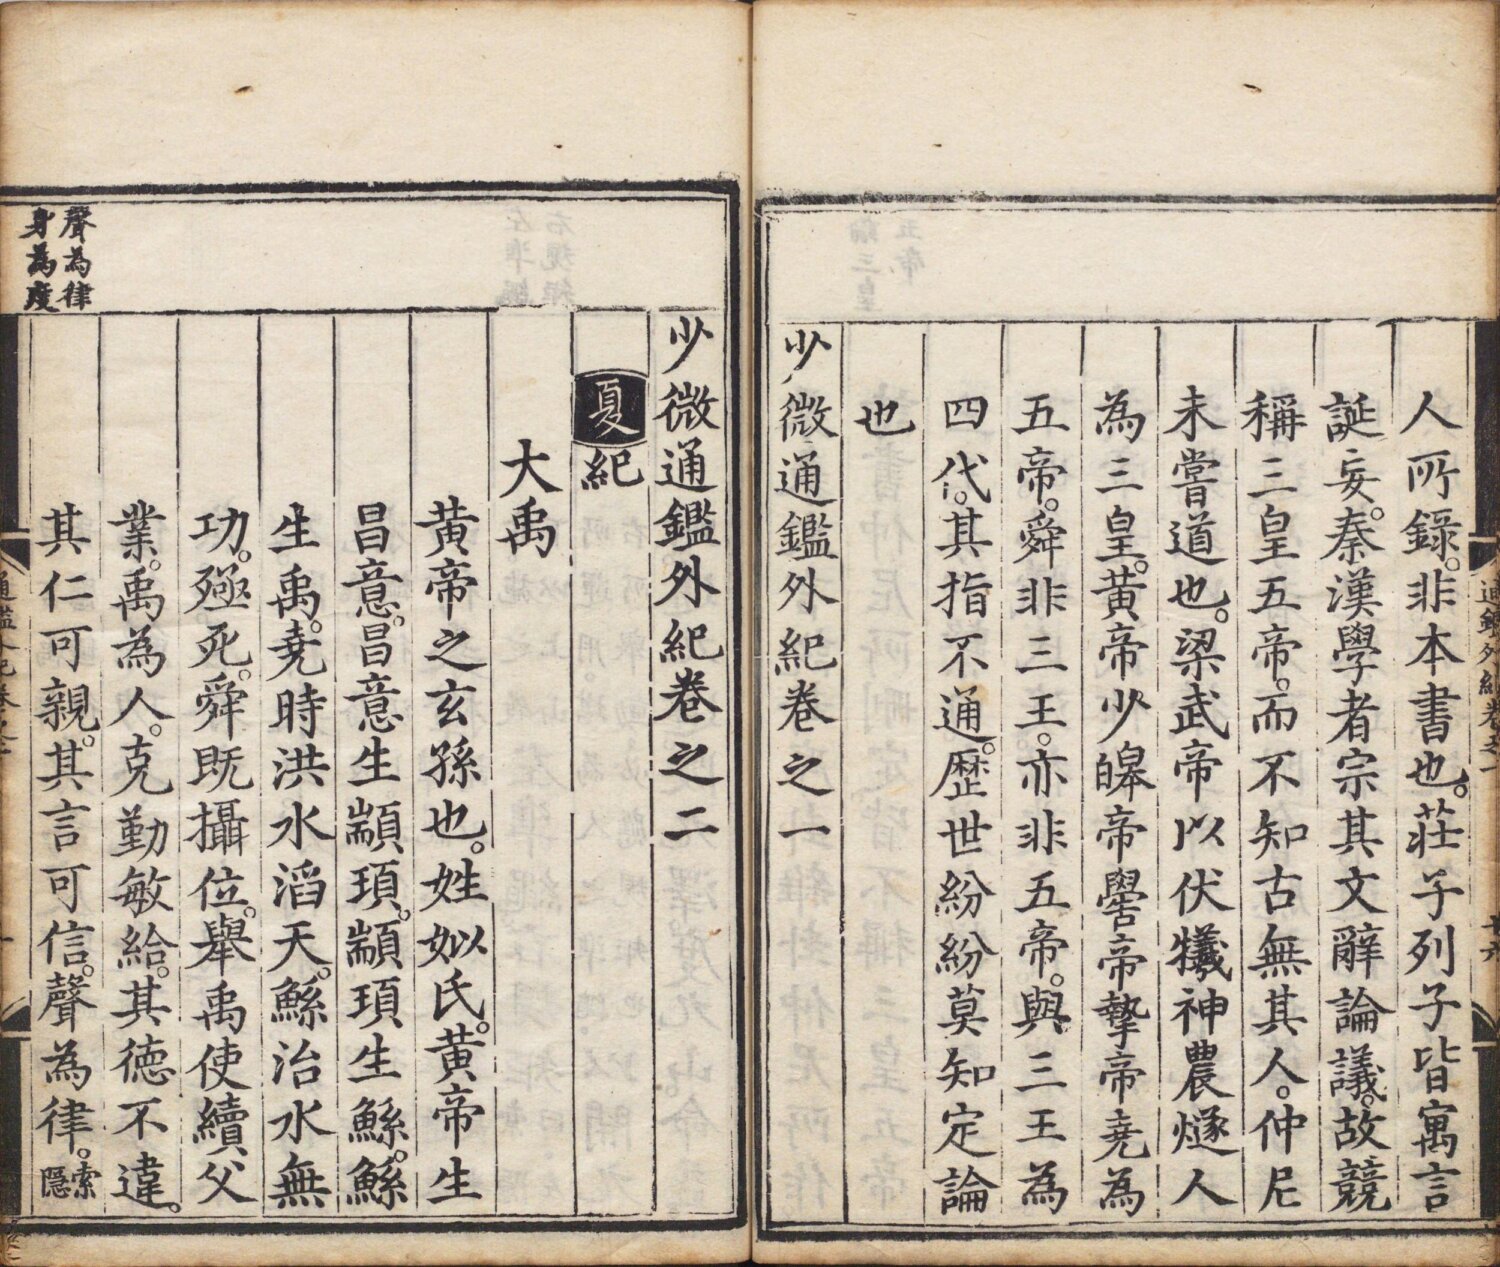 人所錄。非本書也。莊子列子皆寓言
誕妄。秦漢學者宗其文辭論議。故競
稱三皇五帝。而不知古無其人。仲尼
未嘗道也。梁武帝以伏犧神農燧人
為三皇。黃帝少皞帝嚳帝摯帝堯為
五帝。舜非三王。亦非五帝。與三王為
四代。其指不通。歷世紛紛莫知定論
也
少微通鑑外紀卷之一
通鑑外紀卷之一
十六
少微通鑑外紀卷之二
夏紀
大禹
黃帝之玄孫也。姓姒氏。黃帝生
昌意。昌意生顓頊。顓頊生鯀。鯀
生禹。堯時洪水滔天。鯀治水無
功。殛死。舜既攝位。舉禹使續父
業。禹為人。克勤敏給。其德不違。
其仁可親。其言可信。聲為律。索隱
聲為律
身為度